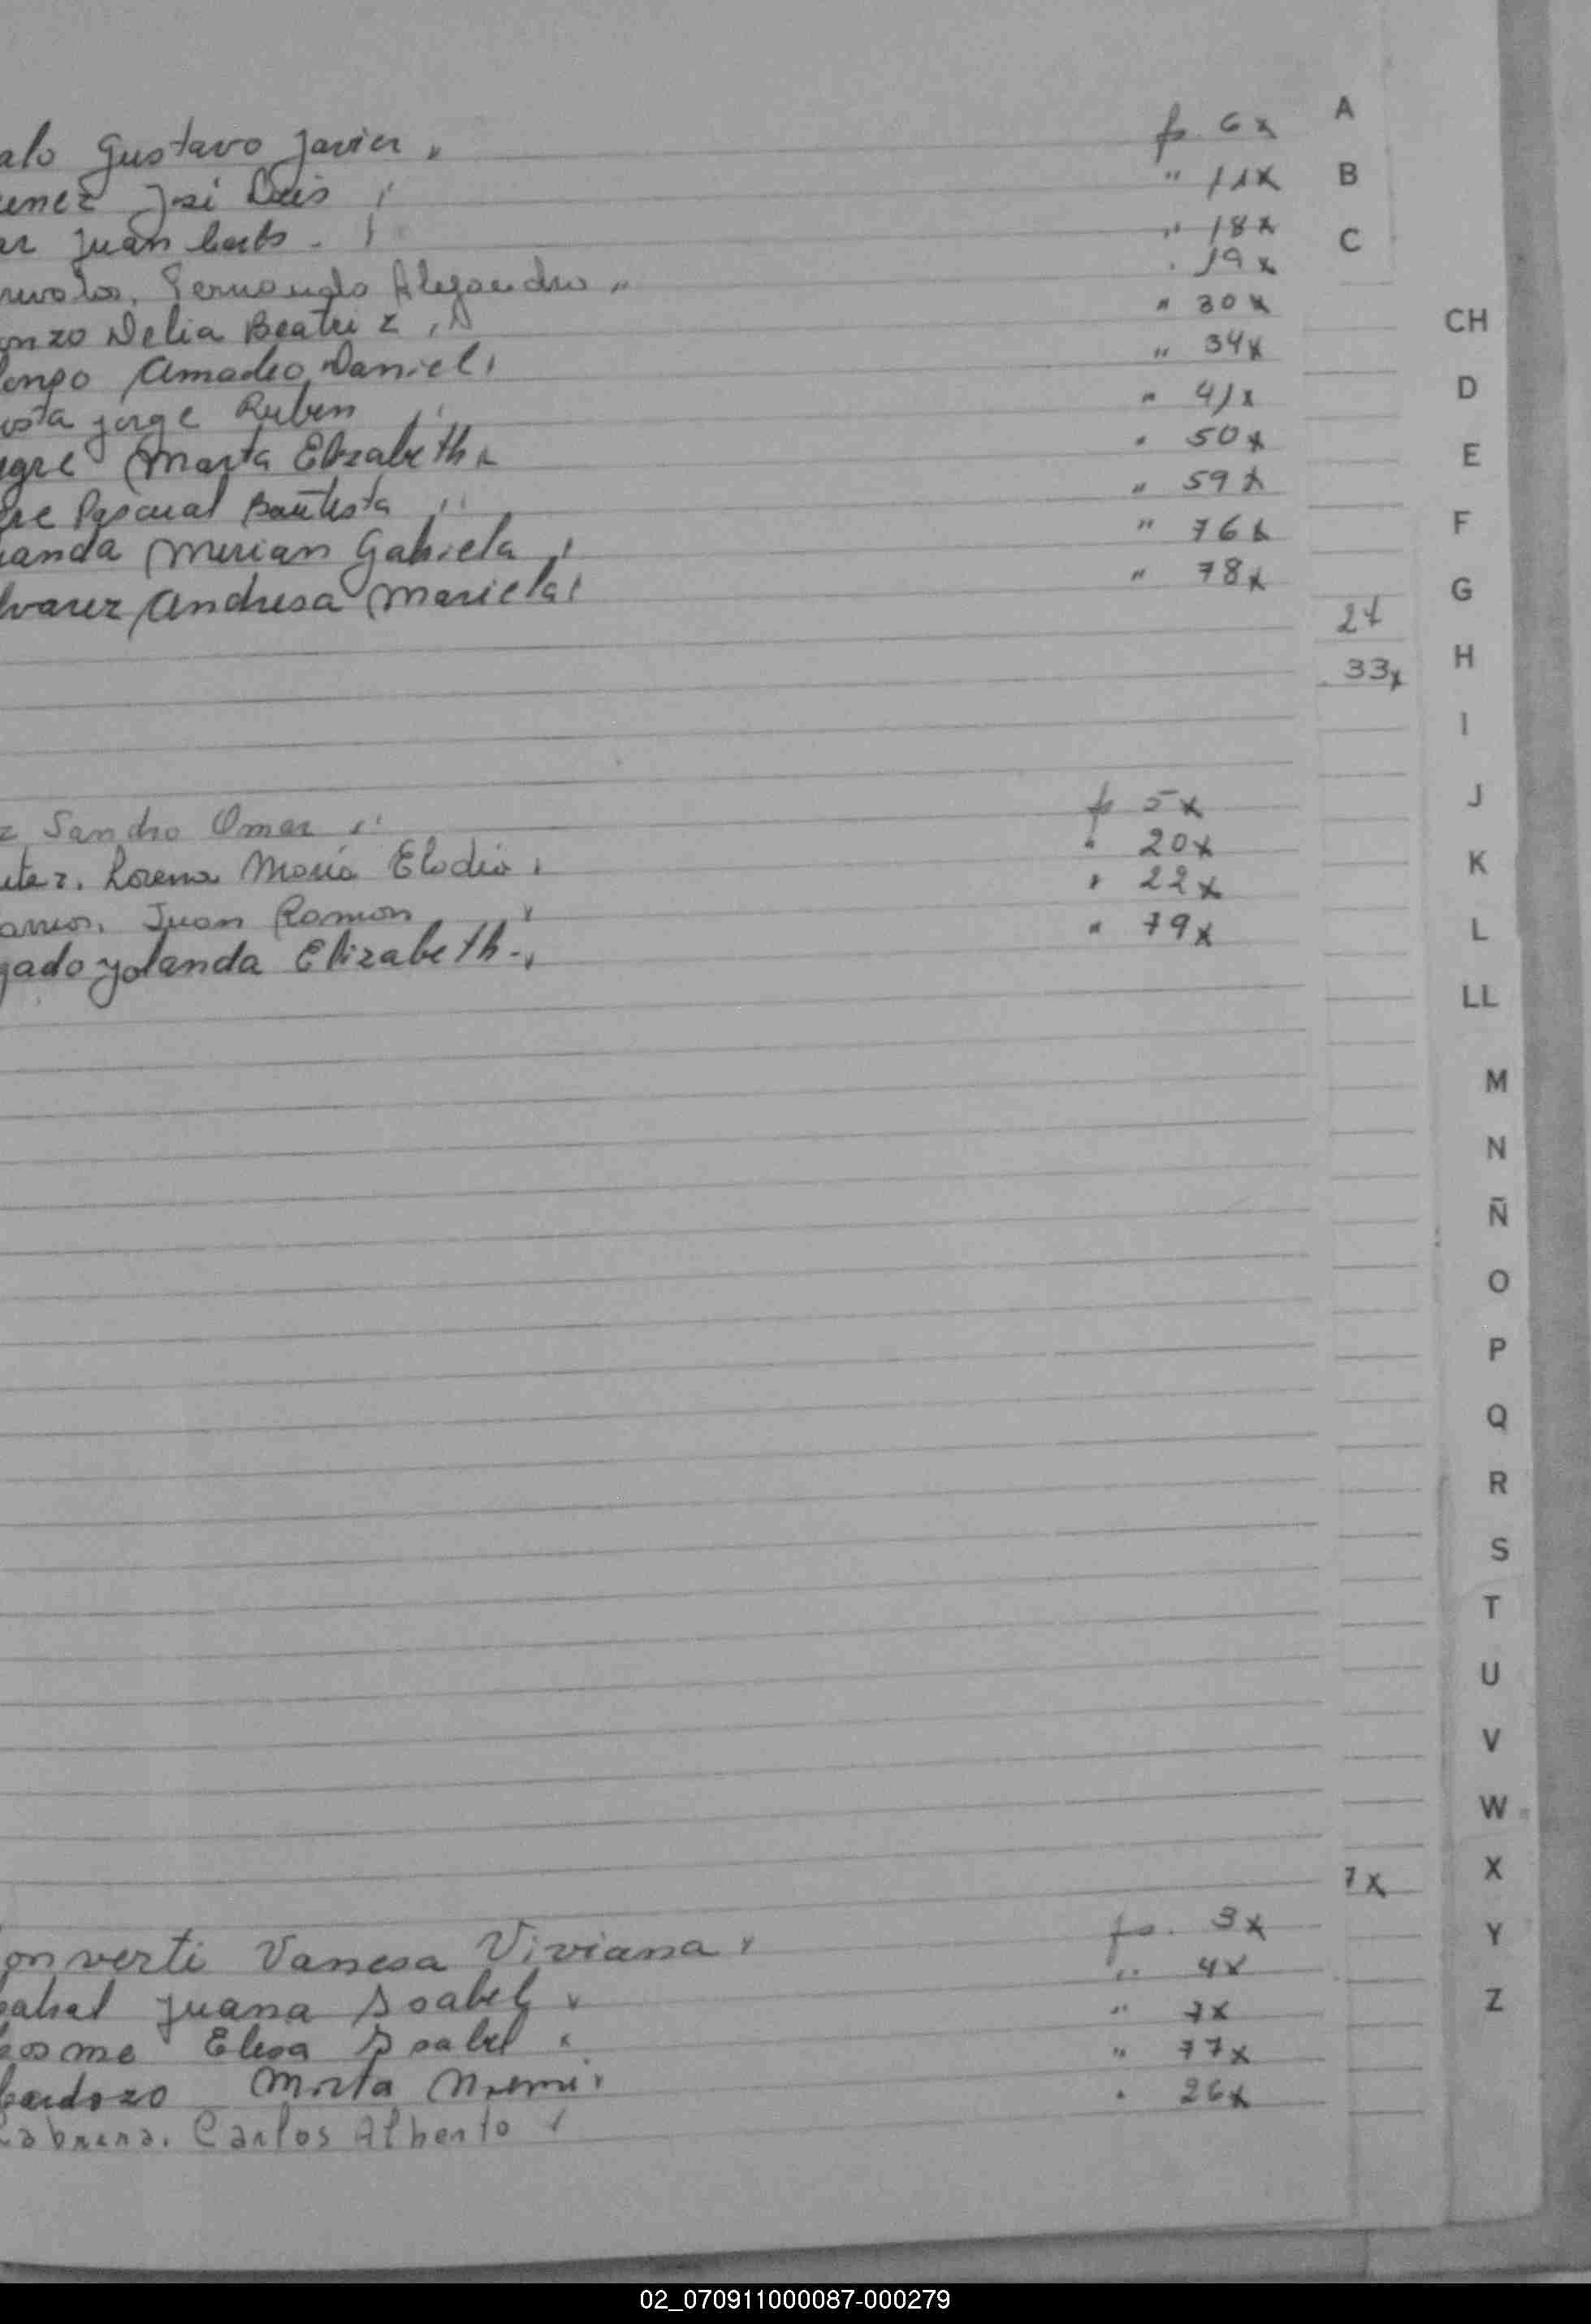 alo Gustavo Javier " fs. 6x
enez José Luis " " 11x
ar Juan Carlos - " " 18x
Fernando Alejandro " . 19x
onzo Delia Beatriz " " 30x
ongo Amadeo Daniel " " 34x
osta Jorge Ruben " " 41x
egre Marta Elizabeth " 50x
gre Pascual Bautista " " 59x
anda Mirian Gabriela " " 76x
lvarez Andresa Mariela " " 78x
27
33x
z Sandro Omar " fs 5x
itez. Lorena María Elodia " " 20x
arrios. Juan Ramon " " 22x
gado Yolanda Elizabeth - " " 79x
7x
onverti Vanesa Viviana " fs. 3x
abral Juana Isabel " " 4x
osme Elisa Isabel " " 7x
Cardozo Mirta Noemi " " 77x
Cabrera. Carlos Alberto " . 26x
A
B
C
CH
D
E
F
G
H
I
J
K
L
LL
M
N
Ñ
O
P
Q
R
S
T
U
V
W
X
Y
Z
02_070911000087-000279